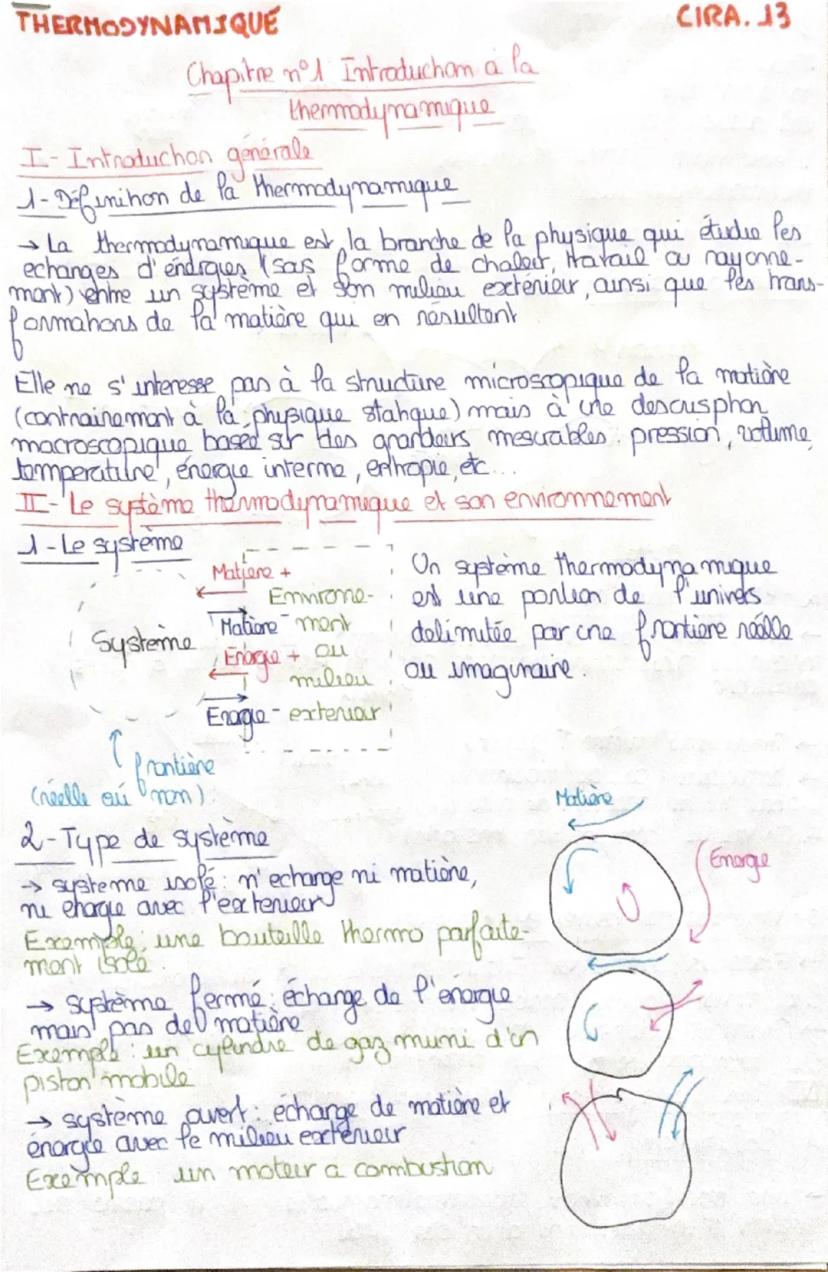 THERMODYNAMIQUE
CIRA. 13
Chapitre n°1 Introduction à la
thermodynamique
I - Introduction générale
1 - Définition de la thermodynamique
→ La thermodynamique est la branche de la physique qui étudie les
echanges d'énergies (sous forme de chaleur, travail ou rayonne-
ment) entre un système et son milieu extérieur, ainsi que les trans-
formations de la matière qui en résultent
Elle ne s'interesse pas à la structure microscopique de la matière
(contrairement à la physique statique) mais à une description
macroscopique based sur des grandeurs mesurables : pression, volume,
température, énergie interne, entropie, etc...
II - Le système thermodynamique et son environnement
1 - Le système
Matiere +
Environe-
Matière - ment
Système
Energie + ou
milieu
Energie - exterieur
frontière
(réelle ou non)
Un système thermodynamique
est une portion de l'univers
delimitée par une frontière réelle
ou imaginaire.
2 - Type de système
→ systeme isolé : n'echange ni matière,
ni energie avec l'exterieur
Exemple : une bouteille thermo parfaite-
ment isolé.
Matière
Energie
→ système fermé : échange de l'energie
mais pas de matière
Exemple : un cylindre de gaz muni d'un
piston mobile
→ système ouvert : échange de matière et
énergie avec le milieu extérieur
Exemple un moteur à combustion